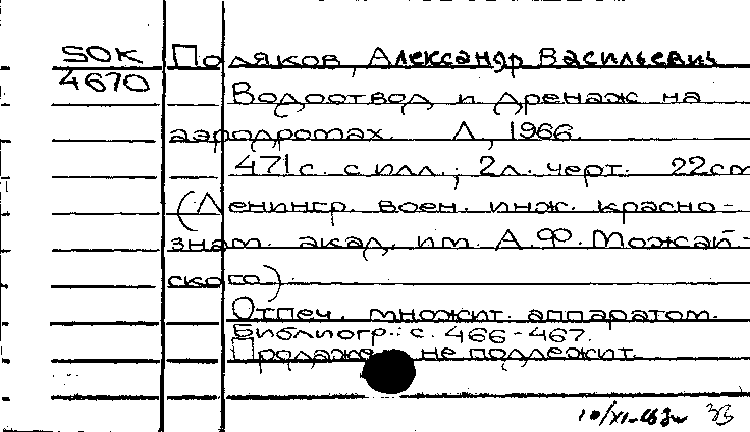 SOK Поляков, Александр Васильевич
4670
Водоотвод и дренаж на
аэродромах. Л., 1966.
471 с. с илл.; 2 л. черт. 22 cm
(Ленингр. воен. инж. красно-
знам. акад. им. А.Ф. Можай-
ского).
Отпеч. множит. аппаратом.
Библиогр.: с. 466-467.
Продаже не подлежит.
10/XI-